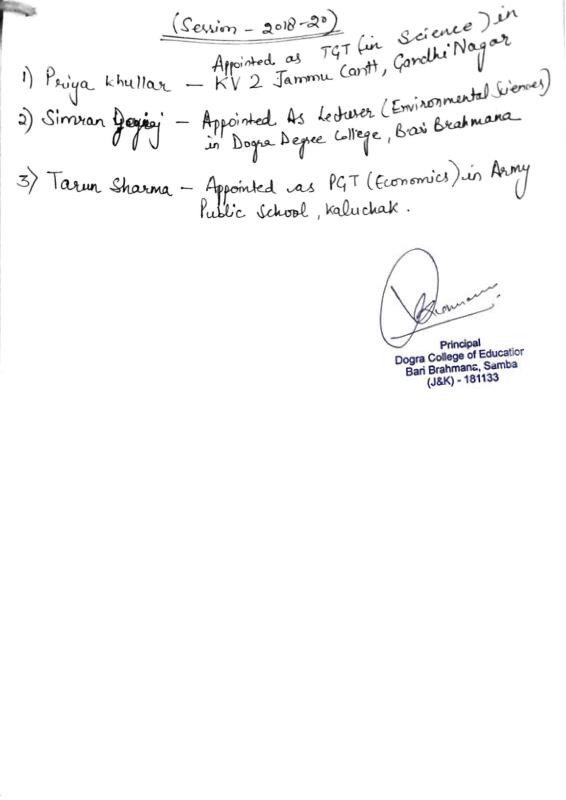 (Session - 2018-20)
Appointed as TGT (in Science) in
1) Priya Khullar - KV 2 Jammu Cantt, Gandhi Nagar
2) Simran - Appointed As Lecturer (Environmental Sciences)
in Dogra Degree College, Bari Brahmana
3) Tarun Sharma - Appointed as PGT (Economics) in Army
Public School, Kaluchak.
Principal
Dogra College of Education
Bari Brahmana, Samba
(J&K) - 181133